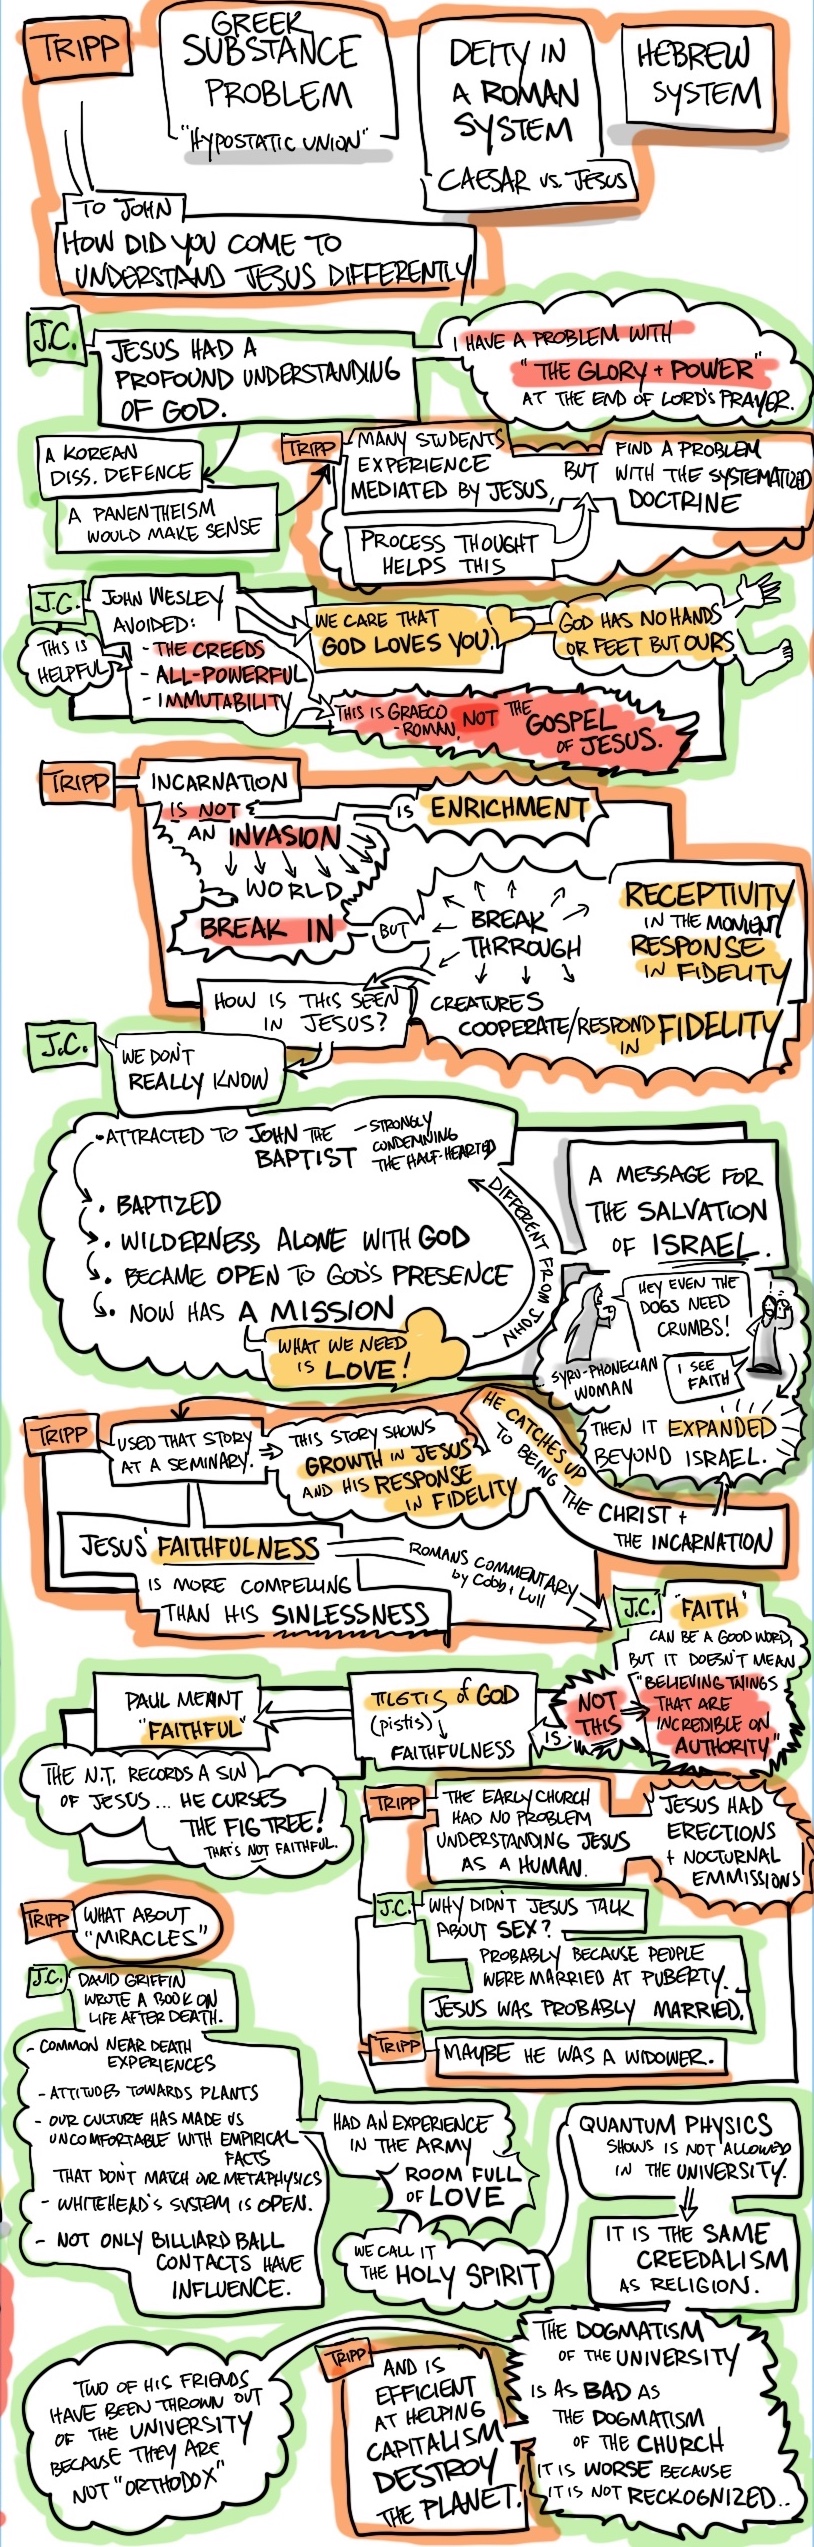 TRIPP
GREEK
SUBSTANCE
PROBLEM
"HYPOSTATIC UNION"
DEITY IN
A ROMAN
SYSTEM
CAESAR VS. JESUS
HEBREW
SYSTEM
TO JOHN
HOW DID YOU COME TO
UNDERSTAND JESUS DIFFERENTLY
J.C.
JESUS HAD A
PROFOUND UNDERSTANDING
OF GOD.
I HAVE A PROBLEM WITH
"THE GLORY + POWER"
AT THE END OF LORD'S PRAYER.
A KOREAN
DISS. DEFENCE
A PANENTHEISM
WOULD MAKE SENSE
TRIPP
MANY STUDENTS
EXPERIENCE
MEDIATED BY JESUS,
BUT
FIND A PROBLEM
WITH THE SYSTEMATIZED
DOCTRINE
PROCESS THOUGHT
HELPS THIS
J.C.
JOHN WESLEY
AVOIDED:
- THE CREEDS
- ALL-POWERFUL
- IMMUTABILITY
THIS IS
HELPFUL
WE CARE THAT
GOD LOVES YOU!
GOD HAS NO HANDS
OR FEET BUT OURS
THIS IS GRAECO
-ROMAN, NOT THE
GOSPEL
OF JESUS.
TRIPP
INCARNATION
IS NOT
AN INVASION
WORLD
BREAK IN
IS ENRICHMENT
BUT
BREAK
THRROUGH
RECEPTIVITY
IN THE MOMENT
RESPONSE
IN FIDELITY
CREATURES
COOPERATE/RESPOND
IN FIDELITY
HOW IS THIS SEEN
IN JESUS?
J.C.
WE DON'T
REALLY KNOW
• ATTRACTED TO JOHN THE
BAPTIST
- STRONGLY
CONDEMNING
THE HALF-HEARTED
• BAPTIZED
• WILDERNESS ALONE WITH GOD
• BECAME OPEN TO GOD'S PRESENCE
• NOW HAS A MISSION
WHAT WE NEED
IS LOVE!
DIFFERENT FROM JOHN
A MESSAGE FOR
THE SALVATION
OF ISRAEL.
HEY EVEN THE
DOGS NEED
CRUMBS!
SYRO-PHONECIAN
WOMAN
I SEE
FAITH
THEN IT EXPANDED
BEYOND ISRAEL.
TRIPP
USED THAT STORY
AT A SEMINARY.
THIS STORY SHOWS
GROWTH IN JESUS
AND HIS RESPONSE
IN FIDELITY
HE CATCHES UP
TO BEING THE CHRIST +
THE INCARNATION
JESUS' FAITHFULNESS
IS MORE COMPELLING
THAN HIS SINLESSNESS
ROMANS COMMENTARY
by Cobb + Lull
J.C.
"FAITH"
CAN BE A GOOD WORD,
BUT IT DOESN'T MEAN
"BELIEVING THINGS
THAT ARE
INCREDIBLE ON
AUTHORITY"
NOT
THIS
IS
ΠΙΣΤΙΣ of GOD
(pistis)
FAITHFULNESS
PAUL MEANT
"FAITHFUL"
THE N.T. RECORDS A SIN
OF JESUS... HE CURSES
THE FIG TREE!
THAT'S NOT FAITHFUL.
TRIPP
THE EARLY CHURCH
HAD NO PROBLEM
UNDERSTANDING JESUS
AS A HUMAN.
JESUS HAD
ERECTIONS
+ NOCTURNAL
EMMISSIONS
J.C.
WHY DIDN'T JESUS TALK
ABOUT SEX?
PROBABLY BECAUSE PEOPLE
WERE MARRIED AT PUBERTY.
JESUS WAS PROBABLY MARRIED.
TRIPP
MAYBE HE WAS A WIDOWER.
TRIPP
WHAT ABOUT
"MIRACLES"
J.C.
DAVID GRIFFIN
WROTE A BOOK ON
LIFE AFTER DEATH.
- COMMON NEAR DEATH
EXPERIENCES
- ATTITUDES TOWARDS PLANTS
- OUR CULTURE HAS MADE US
UNCOMFORTABLE WITH EMPIRICAL
FACTS
THAT DON'T MATCH OUR METAPHYSICS
- WHITEHEAD'S SYSTEM IS OPEN.
- NOT ONLY BILLIARD BALL
CONTACTS HAVE
INFLUENCE.
HAD AN EXPERIENCE
IN THE ARMY
ROOM FULL
OF LOVE
WE CALL IT
THE HOLY SPIRIT
QUANTUM PHYSICS
SHOWS IS NOT ALLOWED
IN THE UNIVERSITY.
IT IS THE SAME
CREEDALISM
AS RELIGION.
THE DOGMATISM
OF THE UNIVERSITY
IS AS BAD AS
THE DOGMATISM
OF THE CHURCH
IT IS WORSE BECAUSE
IT IS NOT RECKOGNIZED..
TWO OF HIS FRIENDS
HAVE BEEN THROWN OUT
OF THE UNIVERSITY
BECAUSE THEY ARE
NOT "ORTHODOX"
TRIPP
AND IS
EFFICIENT
AT HELPING
CAPITALISM
DESTROY
THE PLANET.